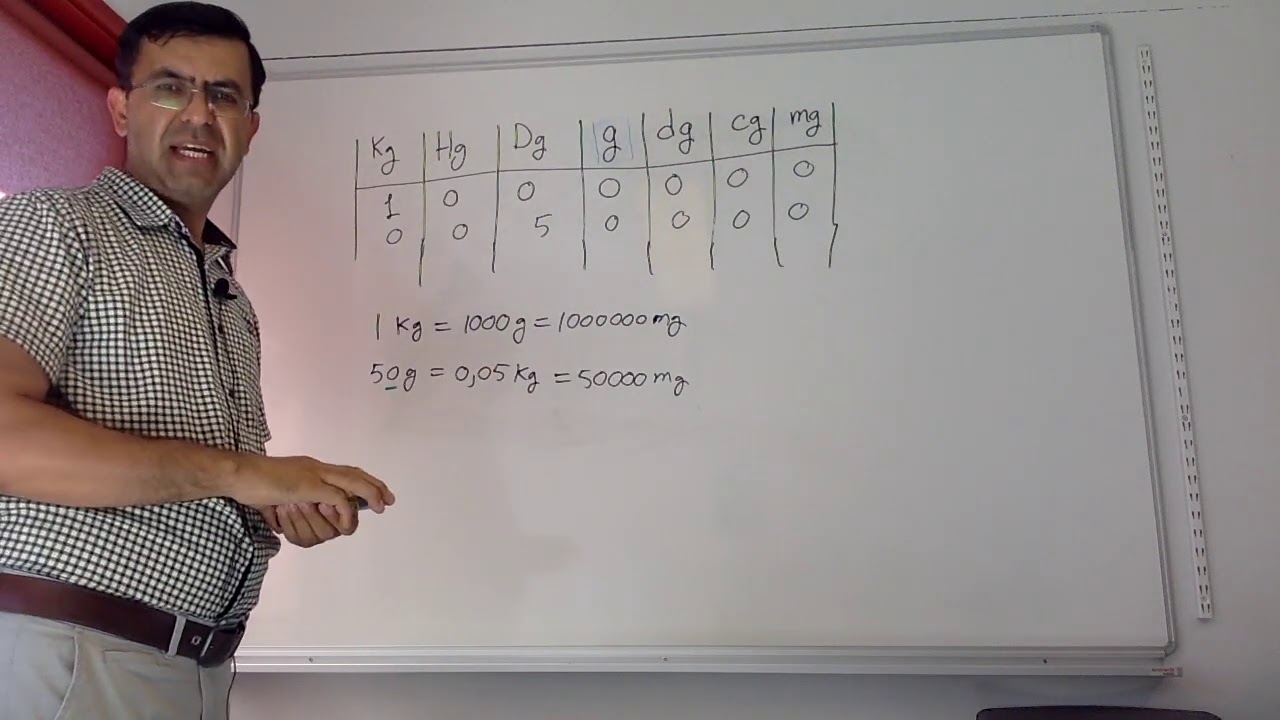 Kg Hg Dg g dg cg mg
1 0 0 0 0 0 0
0 0 5 0 0 0 0
1 Kg = 1000g = 1000000mg
50g = 0,05Kg = 50000mg